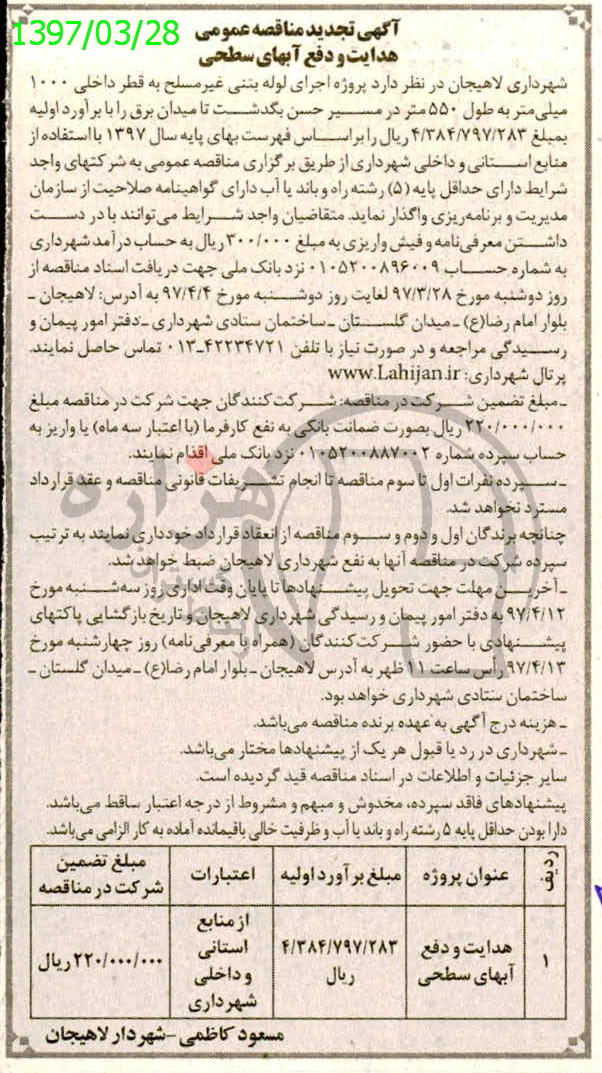 1397/03/28
آگهی تجدید مناقصه عمومی
هدایت و دفع آبهای سطحی
شهرداری لاهیجان در نظر دارد پروژه اجرای لوله بتنی غیرمسلح به قطر داخلی ۱۰۰۰
میلی‌متر به طول ۵۵۰ متر در مسیر حسن بگدشت تا میدان برق را با برآورد اولیه
بمبلغ ۴/۳۸۴/۷۹۷/۲۸۳ ریال را براساس فهرست بهای پایه سال ۱۳۹۷ با استفاده از
منابع استانی و داخلی شهرداری از طریق برگزاری مناقصه عمومی به شرکتهای واجد
شرایط دارای حداقل پایه (۵) رشته راه و باند یا آب دارای گواهینامه صلاحیت از سازمان
مدیریت و برنامه‌ریزی واگذار نماید. متقاضیان واجد شرایط می‌توانند با در دست
داشتن معرفی‌نامه و فیش واریزی به مبلغ ۳۰۰/۰۰۰ ریال به حساب درآمد شهرداری
به شماره حساب ۰۱۰۵۲۰۰۸۹۶۰۰۹ نزد بانک ملی جهت دریافت اسناد مناقصه از
روز دوشنبه مورخ ۹۷/۳/۲۸ لغایت روز دوشنبه مورخ ۹۷/۴/۴ به آدرس: لاهیجان ـ
بلوار امام رضا(ع) ـ میدان گلستان ـ ساختمان ستادی شهرداری ـ دفتر امور پیمان و
رسیدگی مراجعه و در صورت نیاز با تلفن ۴۲۲۳۴۷۲۱-۰۱۳ تماس حاصل نمایند.
پرتال شهرداری: www.Lahijan.ir
ـ مبلغ تضمین شرکت در مناقصه: شرکت‌کنندگان جهت شرکت در مناقصه مبلغ
۲۲۰/۰۰۰/۰۰۰ ریال بصورت ضمانت بانکی به نفع کارفرما (با اعتبار سه ماه) یا واریز به
حساب سپرده شماره ۰۱۰۵۲۰۰۸۸۷۰۰۲ نزد بانک ملی اقدام نمایند.
ـ سپرده نفرات اول تا سوم مناقصه تا انجام تشریفات قانونی مناقصه و عقد قرارداد
مسترد نخواهد شد.
چنانچه برندگان اول و دوم و سوم مناقصه از انعقاد قرارداد خودداری نمایند به ترتیب
سپرده شرکت در مناقصه آنها به نفع شهرداری لاهیجان ضبط خواهد شد.
ـ آخرین مهلت جهت تحویل پیشنهادها تا پایان وقت اداری روز سه‌شنبه مورخ
۹۷/۴/۱۲ به دفتر امور پیمان و رسیدگی شهرداری لاهیجان و تاریخ بازگشایی پاکتهای
پیشنهادی با حضور شرکت‌کنندگان (همراه با معرفی‌نامه) روز چهارشنبه مورخ
۹۷/۴/۱۳ رأس ساعت ۱۱ ظهر به آدرس لاهیجان ـ بلوار امام رضا(ع) ـ میدان گلستان ـ
ساختمان ستادی شهرداری خواهد بود.
ـ هزینه درج آگهی به عهده برنده مناقصه می‌باشد.
ـ شهرداری در رد یا قبول هر یک از پیشنهادها مختار می‌باشد.
سایر جزئیات و اطلاعات در اسناد مناقصه قید گردیده است.
پیشنهادهای فاقد سپرده، مخدوش و مبهم و مشروط از درجه اعتبار ساقط می‌باشد.
دارا بودن حداقل پایه ۵ رشته راه و باند یا آب و ظرفیت خالی باقیمانده آماده به کار الزامی می‌باشد.
ردیف عنوان پروژه مبلغ برآورد اولیه اعتبارات مبلغ تضمین شرکت در مناقصه
۱ هدایت و دفع آبهای سطحی ۴/۳۸۴/۷۹۷/۲۸۳ ریال از منابع استانی و داخلی شهرداری ۲۲۰/۰۰۰/۰۰۰ ریال
مسعود کاظمی - شهردار لاهیجان
هزاره